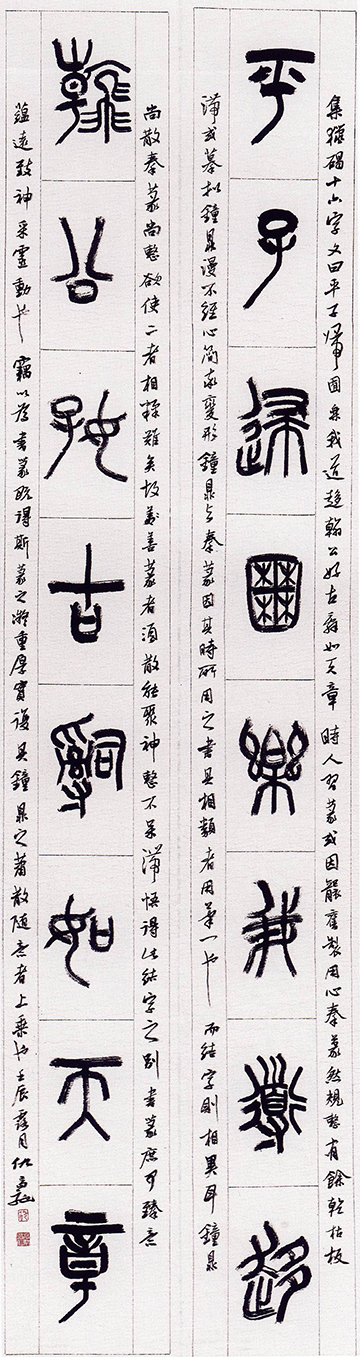 集獵碣十六字文曰平子歸囿樂我道趍翰公好古辭如天章 時人習篆或因襲舊製用心秦篆然規整有餘乾枯板
平子歸囿樂我道趍
滯或摹拟鐘鼎漫不經心簡率變形鐘鼎與秦篆因其時所用之書具相類者用筆一也 而結字則相異耳鐘鼎
尚散秦篆尚整欲使二者相糅難矣故善篆者須散能聚神整不呆滯悟得此結字之別 書篆庶可臻意
翰公好古辭如天章
蘊遠致神采靈動也 竊以為書篆既得斯篆之凝重厚實復具鐘鼎之蕭散隨意者上乘也壬辰露月仇高馳